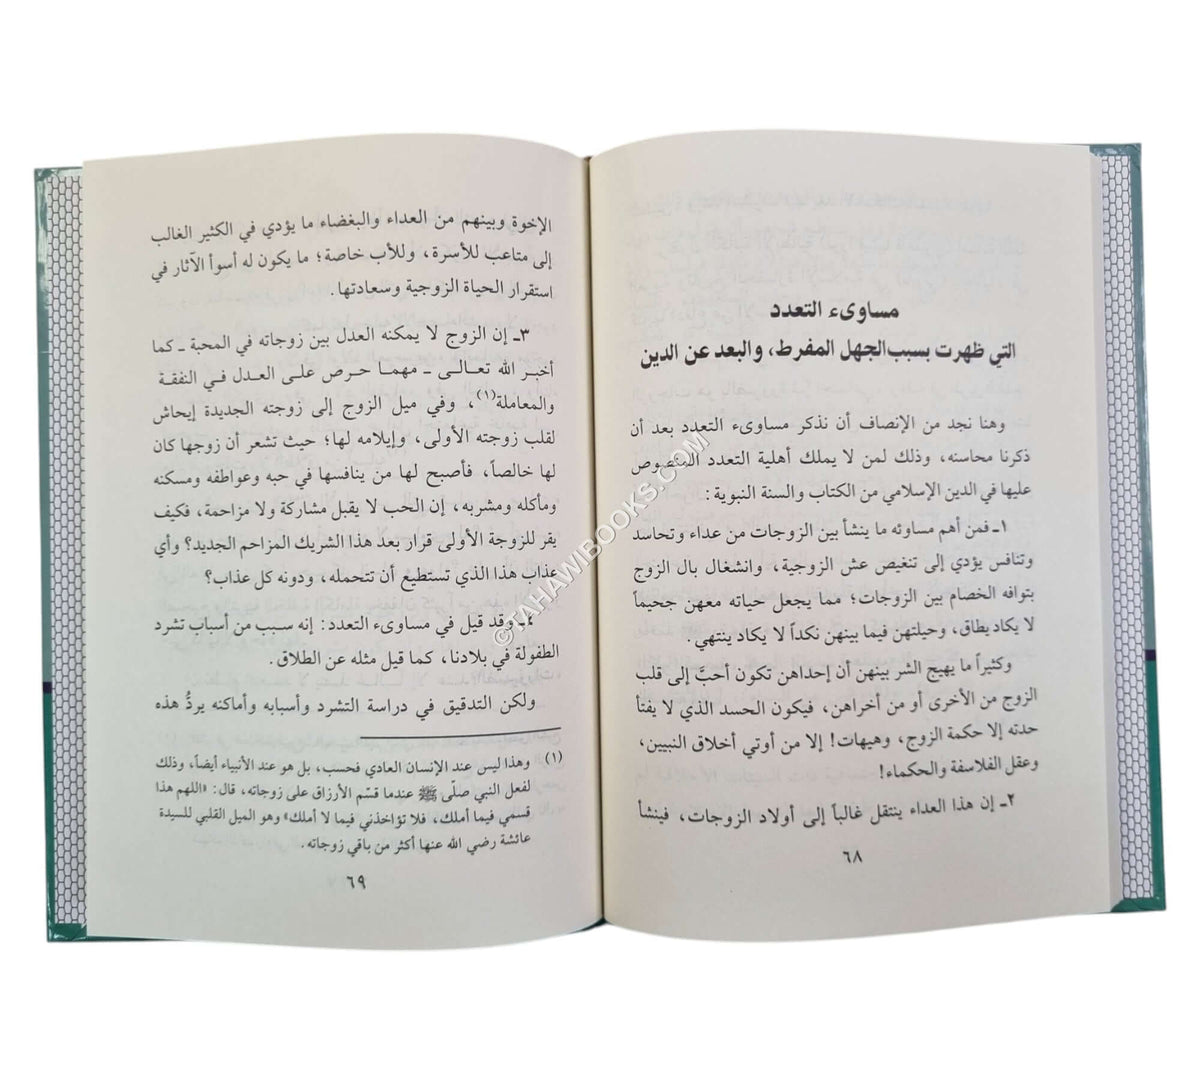 مساوىء التعدد
التي ظهرت بسبب الجهل المفرط، والبعد عن الدين
وهنا نجد من الإنصاف أن نذكر مساوىء التعدد بعد أن
ذكرنا محاسنه، وذلك لمن لا يملك أهلية التعدد المنصوص
عليها في الدين الإسلامي من الكتاب والسنة النبوية:
١ـ فمن أهم مساوئه ما ينشأ بين الزوجات من عداء وتحاسد
وتنافس يؤدي إلى تنغيص عش الزوجية، وانشغال بال الزوج
بتوافه الخصام بين الزوجات؛ مما يجعل حياته معهن جحيماً
لا يكاد يطاق، وحيلتهن فيما بينهن نكداً لا يكاد ينتهي.
وكثيراً ما يهيج الشر بينهن أن إحداهن تكون أحبَّ إلى قلب
الزوج من الأخرى أو من أخراهن، فيكون الحسد الذي لا يفتأ
حدته إلا حكمة الزوج، وهيهات! إلا من أوتي أخلاق النبيين،
وعقل الفلاسفة والحكماء!
٢ـ إن هذا العداء ينتقل غالباً إلى أولاد الزوجات، فينشأ
٦٨
الإخوة وبينهم من العداء والبغضاء ما يؤدي في الكثير الغالب
إلى متاعب للأسرة، وللأب خاصة؛ ما يكون له أسوأ الآثار في
استقرار الحياة الزوجية وسعادتها.
٣ـ إن الزوج لا يمكنه العدل بين زوجاته في المحبة ـ كما
أخبر الله تعالى ـ مهما حرص على العدل في النفقة
والمعاملة(١)، وفي ميل الزوج إلى زوجته الجديدة إيحاش
لقلب زوجته الأولى، وإيلامه لها؛ حيث تشعر أن زوجها كان
لها خالصاً، فأصبح لها من ينافسها في حبه وعواطفه ومسكنه
ومأكله ومشربه، إن الحب لا يقبل مشاركة ولا مزاحمة، فكيف
يقر للزوجة الأولى قرار بعد هذا الشريك المزاحم الجديد؟ وأي
عذاب هذا الذي تستطيع أن تتحمله، ودونه كل عذاب؟
٤ـ وقد قيل في مساوىء التعدد: إنه سبب من أسباب تشرد
الطفولة في بلادنا، كما قيل مثله عن الطلاق.
ولكن التدقيق في دراسة التشرد وأسبابه وأماكنه يردُّ هذه
(١) وهذا ليس عند الإنسان العادي فحسب، بل هو عند الأنبياء أيضاً، وذلك
لفعل النبي صلّى ﷺ عندما قسّم الأرزاق على زوجاته، قال: «اللهم هذا
قسمي فيما أملك، فلا تؤاخذني فيما لا أملك» وهو الميل القلبي للسيدة
عائشة رضي الله عنها أكثر من باقي زوجاته.
٦٩
©TAHAWIBOOKS.COM